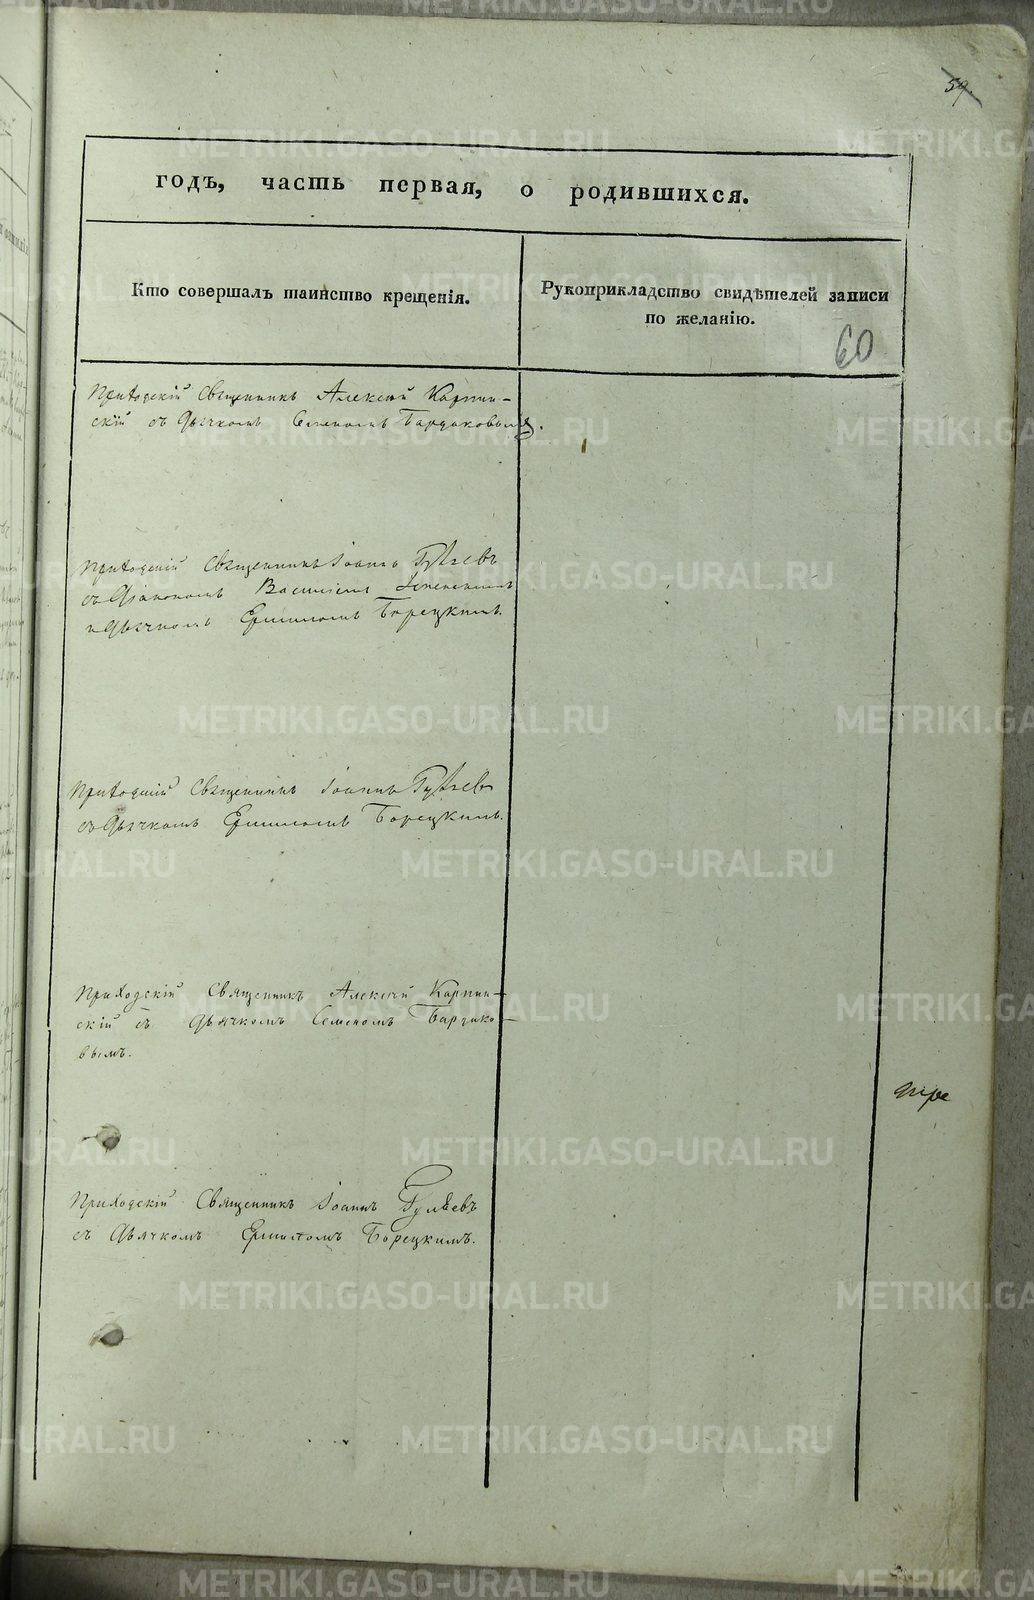 59.
годъ, часть первая, о родившихся.
Кто совершалъ таинство крещенія.
Рукоприкладство свидѣтелей записи
по желанію.
60
Приходскій Священникъ Алексѣй Карпин-
скій съ Дьячкомъ Семеномъ Бардаковымъ.
Приходскій Священникъ Іоаннъ Гуляевъ
съ Діакономъ Василіемъ
и Дьячкомъ Ермиломъ Борецкимъ.
Приходскій Священникъ Іоаннъ Гуляевъ
съ Дьячкомъ Ермиломъ Борецкимъ.
Приходскій Священникъ Алексѣй Карпин-
скій съ Дьячкомъ Семеномъ Бардако-
вымъ.
Приходскій Священникъ Іоаннъ Гуляевъ
съ Дьячкомъ Ермиломъ Борецкимъ.
METRIKI.GASO-URAL.RU